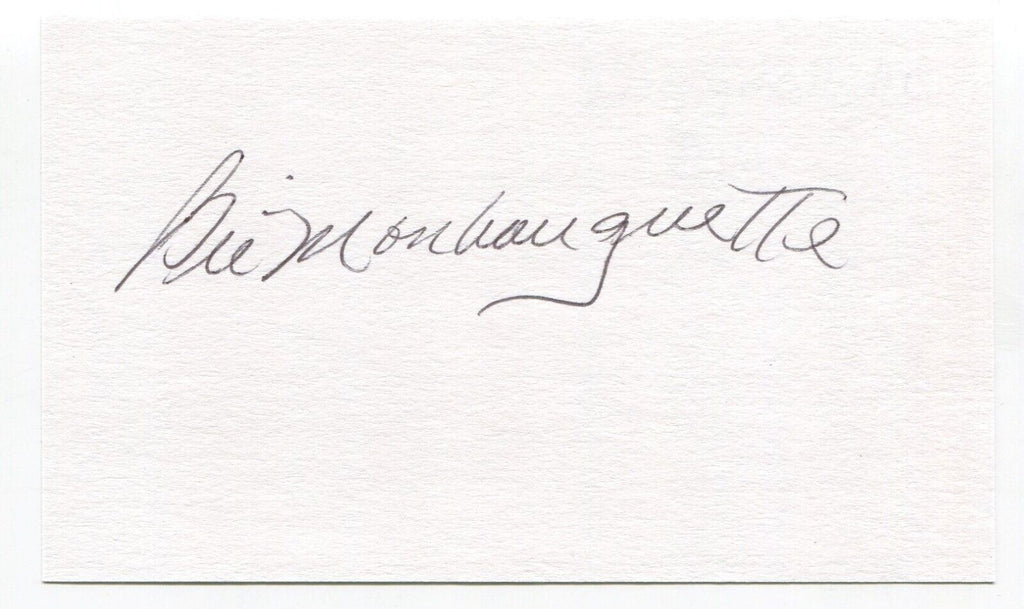 Bill Monbouquette